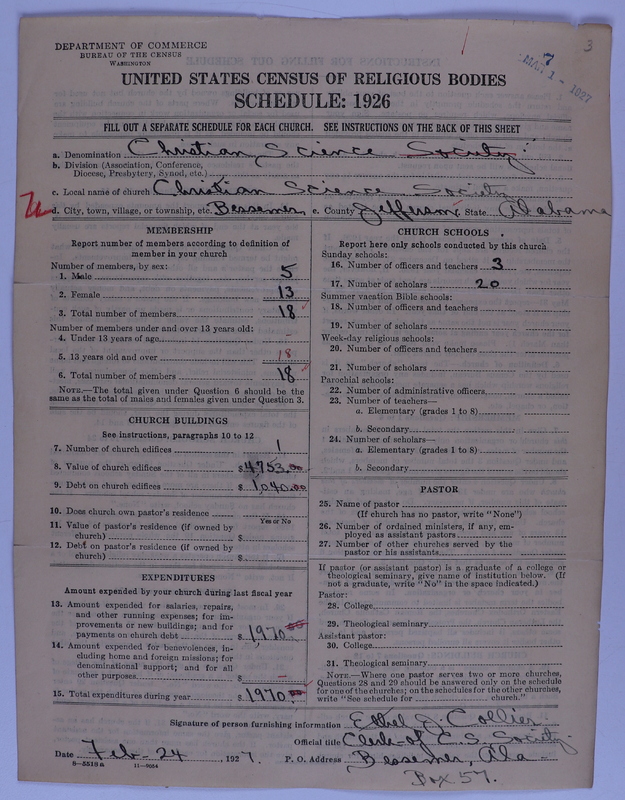 DEPARTMENT OF COMMERCE
BUREAU OF THE CENSUS
WASHINGTON
MAR 1 - 1927
7
3
UNITED STATES CENSUS OF RELIGIOUS BODIES
SCHEDULE: 1926
FILL OUT A SEPARATE SCHEDULE FOR EACH CHURCH. SEE INSTRUCTIONS ON THE BACK OF THIS SHEET
a. Denomination Christian Science Society
b. Division (Association, Conference,
Diocese, Presbytery, Synod, etc.)
c. Local name of church Christian Science Society
d. City, town, village, or township, etc. Bessemer e. County Jefferson State Alabama
MEMBERSHIP
Report number of members according to definition of
member in your church
Number of members, by sex:
1. Male 5
2. Female 13
3. Total number of members 18
Number of members under and over 13 years old:
4. Under 13 years of age -
5. 13 years old and over 18
6. Total number of members 18
NOTE.—The total given under Question 6 should be the
same as the total of males and females given under Question 3.
CHURCH BUILDINGS
See instructions, paragraphs 10 to 12
7. Number of church edifices 1
8. Value of church edifices $4753.00
9. Debt on church edifices $1,040.00
10. Does church own pastor's residence
Yes or No
11. Value of pastor's residence (if owned by
church) $
12. Debt on pastor's residence (if owned by
church) $
EXPENDITURES
Amount expended by your church during last fiscal year
13. Amount expended for salaries, repairs,
and other running expenses; for im-
provements or new buildings; and for
payments on church debt $1970.00
14. Amount expended for benevolences, in-
cluding home and foreign missions; for
denominational support; and for all
other purposes $ -
15. Total expenditures during year $1970.00
CHURCH SCHOOLS
Report here only schools conducted by this church
Sunday schools:
16. Number of officers and teachers 3
17. Number of scholars 20
Summer vacation Bible schools:
18. Number of officers and teachers
19. Number of scholars
Week-day religious schools:
20. Number of officers and teachers
21. Number of scholars
Parochial schools:
22. Number of administrative officers
23. Number of teachers—
a. Elementary (grades 1 to 8)
b. Secondary
24. Number of scholars—
a. Elementary (grades 1 to 8)
b. Secondary
PASTOR
25. Name of pastor
(If church has no pastor, write "None")
26. Number of ordained ministers, if any, em-
ployed as assistant pastors
27. Number of other churches served by the
pastor or his assistants
If pastor (or assistant pastor) is a graduate of a college or
theological seminary, give name of institution below. (If
not a graduate, write "No" in the space indicated.)
Pastor:
28. College
29. Theological seminary
Assistant pastor:
30. College
31. Theological seminary
NOTE.—Where one pastor serves two or more churches,
Questions 28 and 29 should be answered only on the schedule
for one of the churches; on the schedules for the other churches,
write "See schedule for church."
Signature of person furnishing information Ethel J. Collier
Official title Clerk of C. S. Society
Date Feb- 24, 1927. P. O. Address Bessemer, Ala
8-5518a 11-9054
Box 57.